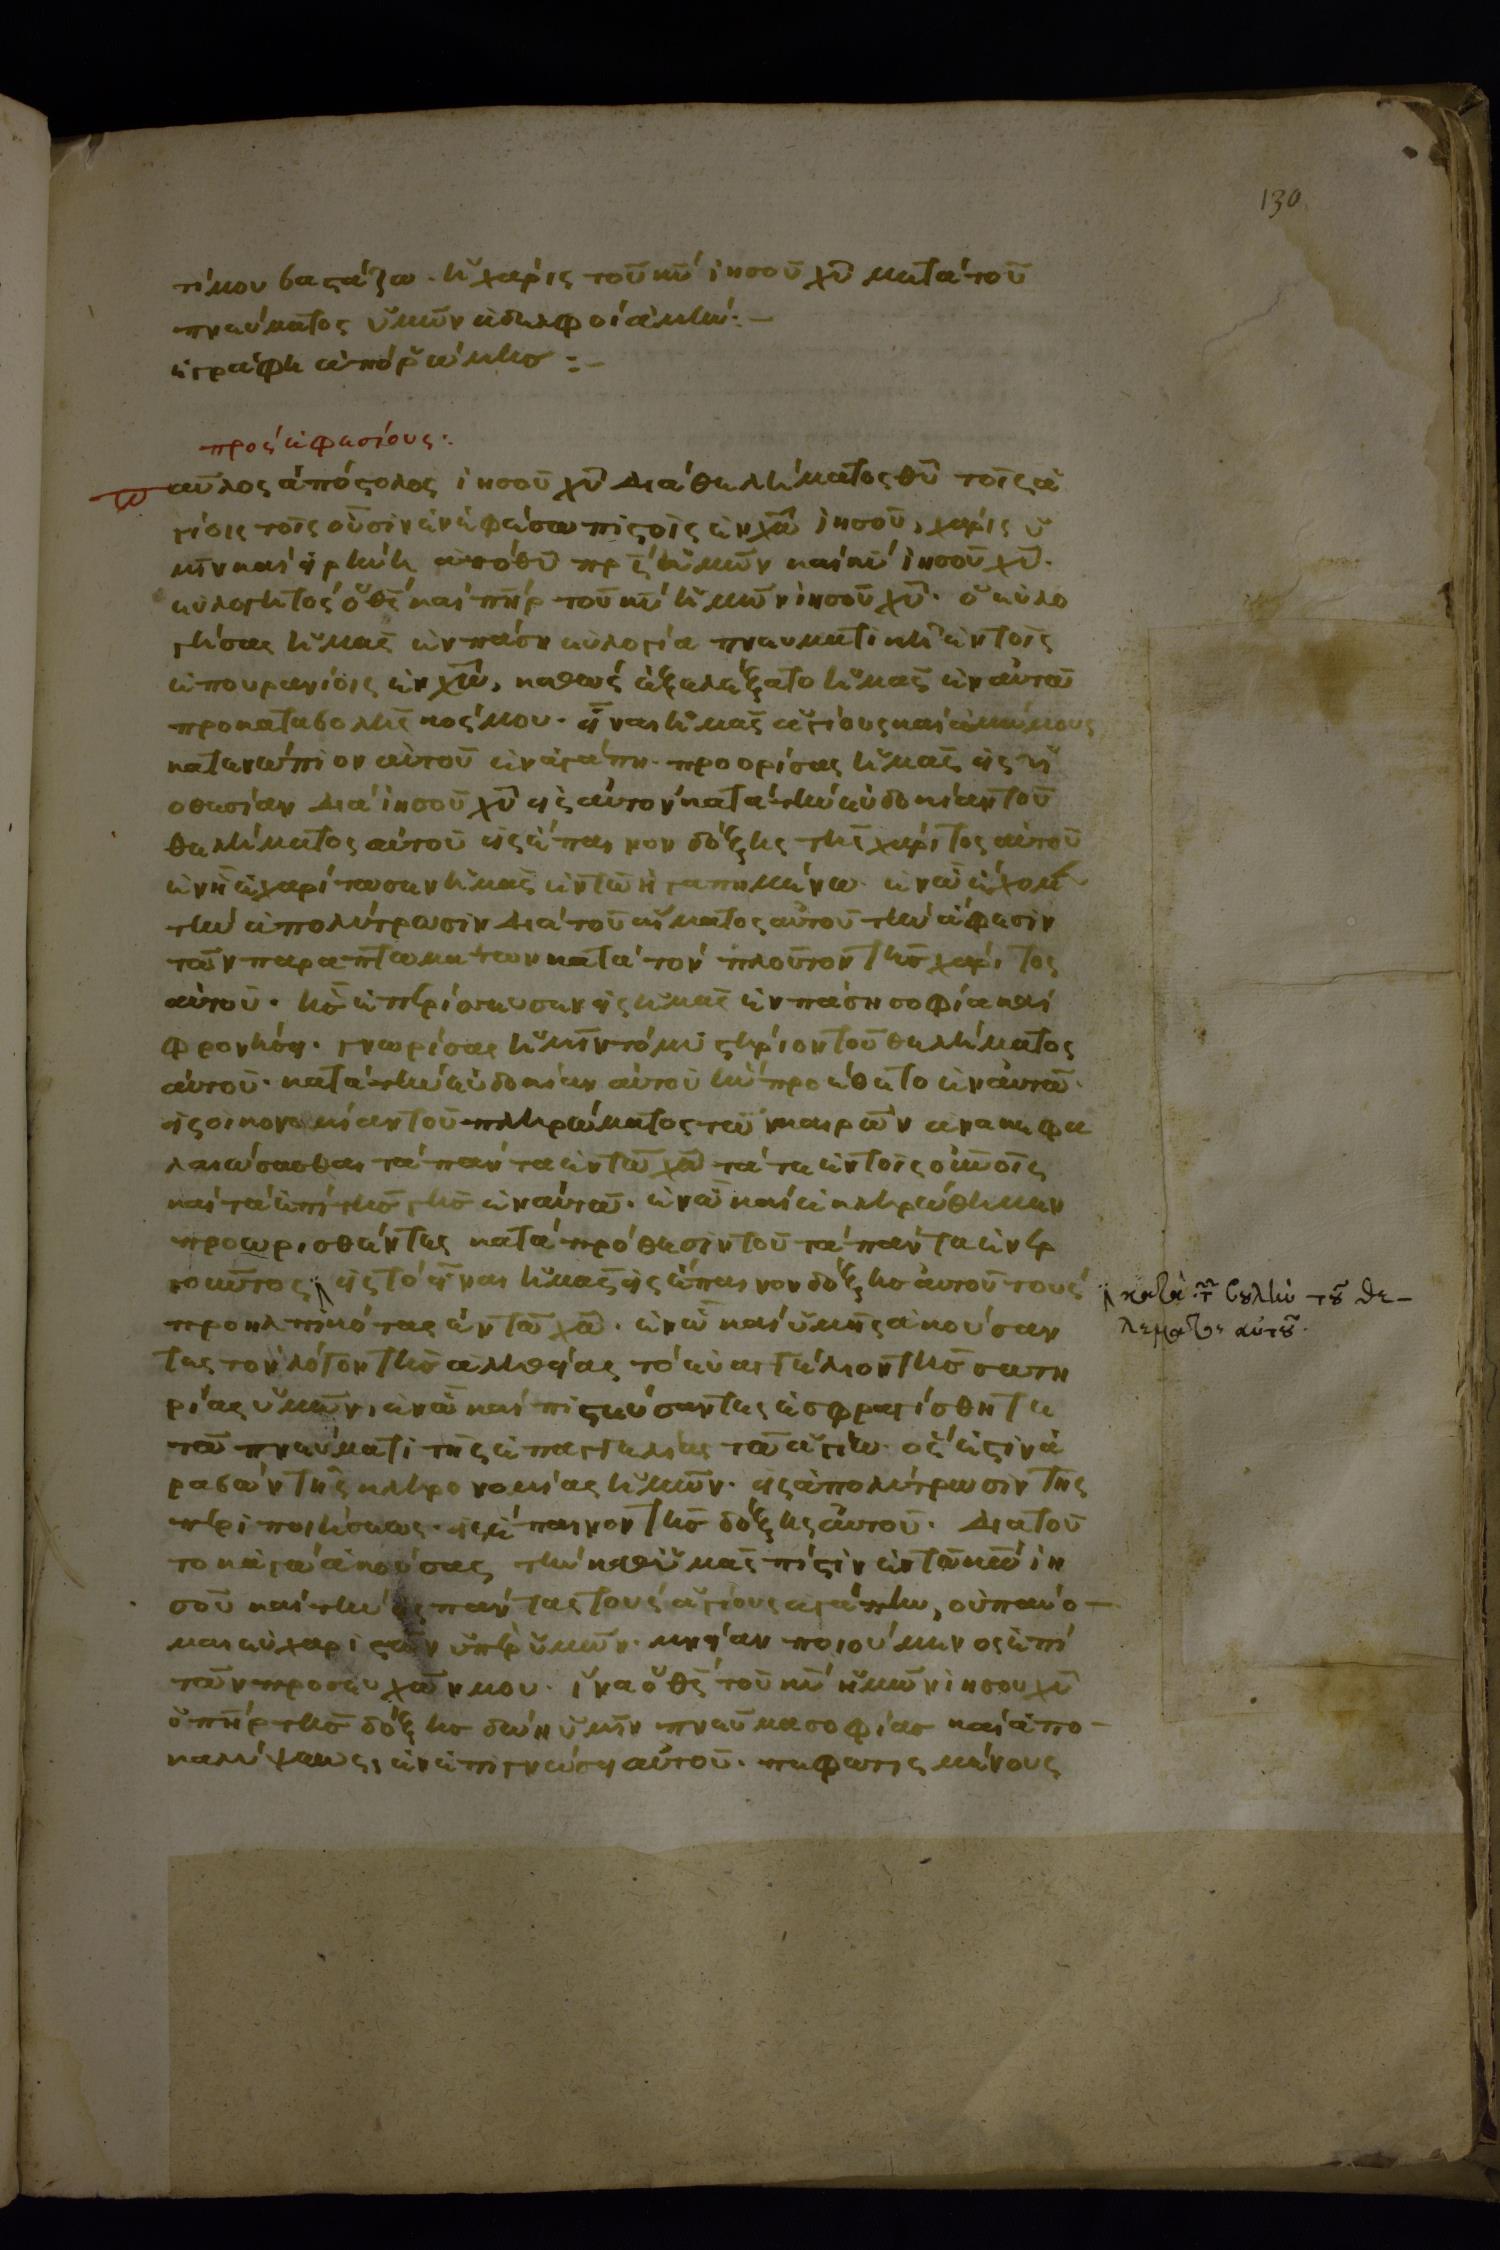 130
τί μου βαστάζω. ἡ χάρις τοῦ κυ ἰησοῦ χυ μετὰ τοῦ
πνεύματος ὑμῶν ἀδελφοί ἀμήν:—
ἐγράφη ἀπὸ ῥώμης:—
πρὸς ἐφεσίους:
παῦλος ἀπόστολος ἰησοῦ χυ διὰ θελήματος θυ τοῖς ἁ
γίοις τοῖς οὖσιν ἐν ἐφέσω πιστοῖς ἐν χω ἰησοῦ, χάρις ὑ
μῖν καὶ εἰρήνη ἀπὸ θυ πρς ἡμῶν καὶ κυ ἰησοῦ χυ.
εὐλογητὸς ὁ θς καὶ πηρ τοῦ κυ ἡμῶν ἰησοῦ χυ. ὁ εὐλο
γήσας ἡμᾶς ἐν πάσῃ εὐλογία πνευματικῇ ἐν τοῖς
ἐπουρανίοις ἐν χω, καθὼς ἐξελέξατο ἡμᾶς ἐν αὐτῶ
πρὸ καταβολῆς κόσμου. εἶναι ἡμᾶς ἁγίους καὶ ἀμώμους
κατενώπιον αὐτοῦ ἐν ἀγάπη. προορίσας ἡμᾶς εἰς υἱ
οθεσίαν διὰ ἰησοῦ χυ εἰς αὐτὸν κατὰ τὴν εὐδοκίαν τοῦ
θελήματος αὐτοῦ εἰς ἔπαινον δόξης τῆς χάριτος αὐτοῦ
ἐν ᾗ ἐχαρίτωσεν ἡμᾶς ἐν τῶ ἠγαπημένω. ἐν ὧ ἔχομεν
τὴν ἀπολύτρωσιν διὰ τοῦ αἵματος αὐτοῦ τὴν ἄφεσιν
τῶν παραπτωμάτων κατὰ τὸν πλοῦτον τῆς χάριτος
αὐτοῦ. ἧς ἐπερίσσευσεν εἰς ἡμᾶς ἐν πάσῃ σοφία καὶ
φρονήσει. γνωρίσας ἡμῖν τὸ μυστήριον τοῦ θελήματος
αὐτοῦ. κατὰ τὴν εὐδοκίαν αὐτοῦ ἣν προέθετο ἐν αὐτῶ.
εἰς οἰκονομίαν τοῦ πληρώματος τῶν καιρῶν ἀνακεφα
λαιώσασθαι τὰ πάντα ἐν τῶ χω τά τε ἐν τοῖς οὐνοῖς
καὶ τὰ ἐπὶ τῆς γῆς ἐν αὐτῶ. ἐν ὧ καὶ ἐκληρώθημεν
προωρισθέντες κατὰ πρόθεσιν τοῦ τὰ πάντα ἐνερ
γοῦντος εἰς τὸ εἶναι ἡμᾶς εἰς ἔπαινον δόξης αὐτοῦ τοὺς
κατὰ τὴν βουλὴν τοῦ θε—
λήματος αὐτοῦ.
προηλπικότας ἐν τῶ χω. ἐν ὧ καὶ ὑμεῖς ἀκούσαν
τες τὸν λόγον τῆς ἀληθείας τὸ εὐαγγέλιον τῆς σωτη
ρίας ὑμῶν, ἐν ὧ καὶ πιστεύσαντες ἐσφραγίσθητε
τῶ πνεύματι τῆς ἐπαγγελίας τῶ ἁγίω. ὅς ἐστιν ἀ
ραβὼν τῆς κληρονομίας ἡμῶν. εἰς ἀπολύτρωσιν τῆς
περιποιήσεως. εἰς ἔπαινον τῆς δόξης αὐτοῦ. διὰ τοῦ
το κἀγὼ ἀκούσας τὴν καθ' ὑμᾶς πίστιν ἐν τῶ κω ἰη
σοῦ καὶ τὴν εἰς πάντας τοὺς ἁγίους ἀγάπην, οὐ παύο—
μαι εὐχαριστῶν ὑπὲρ ὑμῶν. μνείαν ποιούμενος ἐπὶ
τῶν προσευχῶν μου. ἵνα ὁ θς τοῦ κυ ἡμῶν ἰησου χυ
ὁ πηρ τῆς δόξης δώη ὑμῖν πνεῦμα σοφίας καὶ ἀπο—
καλύψεως, ἐν ἐπιγνώσει αὐτοῦ. πεφωτισμένους